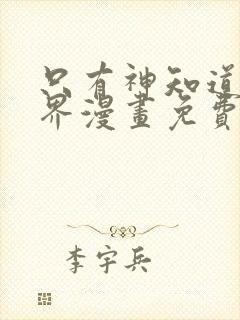 只有神知道
界漫畫免費
李宇兵